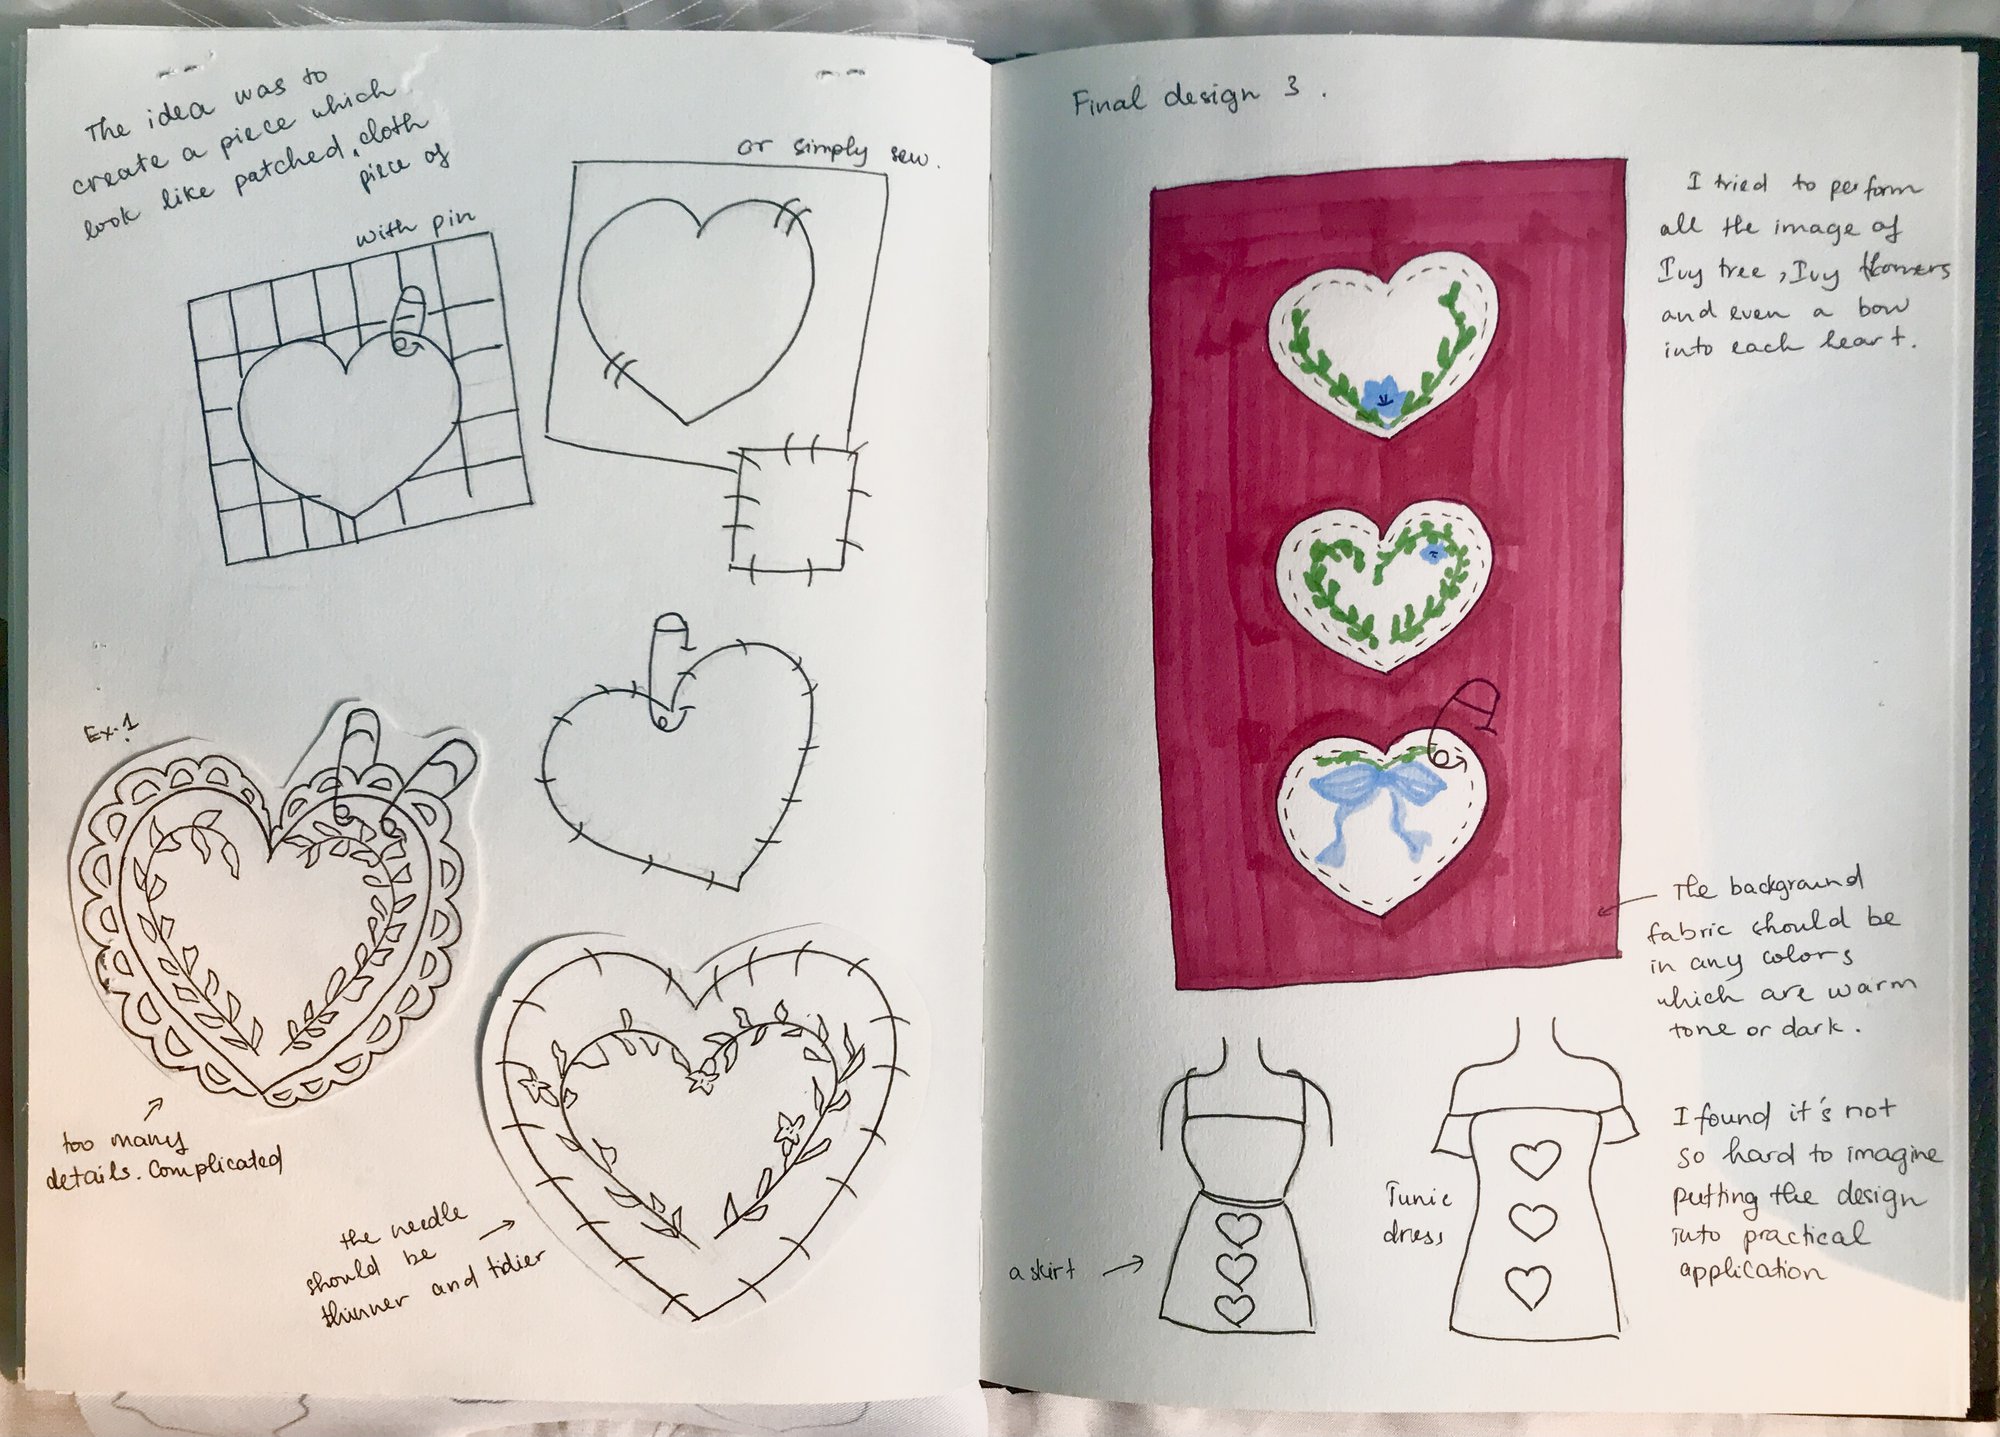 The idea was to
create a piece which
look like patched, cloth
piece of
with pin
or simply sew.
Ex.1
too many
details. Complicated
the needle
should be
thinner and tidier
Final design 3.
I tried to perform
all the image of
Ivy tree, Ivy flowers
and even a bow
into each heart.
The background
fabric should be
in any colors
which are warm
tone or dark.
a skirt
Tunic
dress
I found it's not
so hard to imagine
putting the design
into practical
application